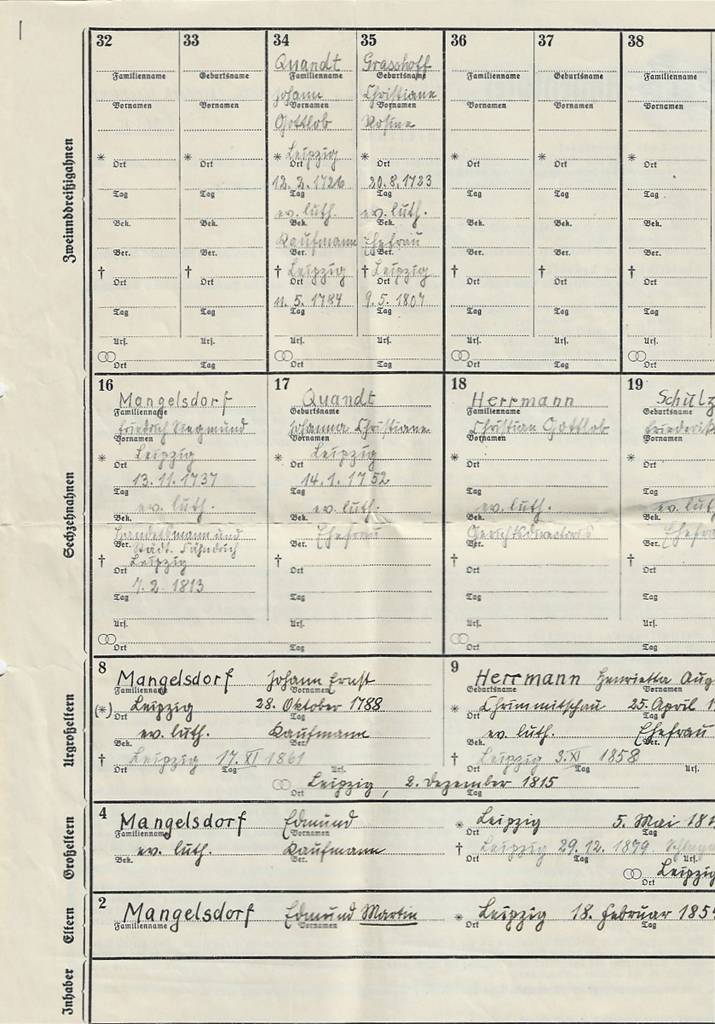 Zweiunddreißigahnen
32
Familienname
Vornamen
* Ort
Tag
Bek.
Ber.
† Ort
Tag
Urk.
Ort Tag
33
Geburtsname
Vornamen
* Ort
Tag
Bek.
Ber.
† Ort
Tag
Urk.
34
Quandt
Familienname
Johann
Vornamen
Gottlob
* Leipzig
Ort
12. 2. 1726
Tag
ev. luth.
Bek.
Kaufmann
Ber.
† Leipzig
Ort
11. 5. 1784
Tag
Urk.
Ort Tag
35
Grasshoff
Geburtsname
Christiane
Vornamen
Rosine
* Leipzig
Ort
20. 8. 1723
Tag
ev. luth.
Bek.
Ehefrau
Ber.
† Leipzig
Ort
9. 5. 1807
Tag
Urk.
36
Familienname
Vornamen
* Ort
Tag
Bek.
Ber.
† Ort
Tag
Urk.
Ort Tag
37
Geburtsname
Vornamen
* Ort
Tag
Bek.
Ber.
† Ort
Tag
Urk.
38
Familienname
Vornamen
* Ort
Tag
Bek.
Ber.
† Ort
Tag
Urk.
Ort
Sechzehnahnen
16
Mangelsdorf
Familienname
Friedrich Siegmund
Vornamen
* Leipzig
Ort
13. 11. 1737
Tag
ev. luth.
Bek.
Handelsmann und
Ber. Stadt. Fähndrich
† Leipzig
Ort
7. 2. 1813
Tag
Urk.
Ort Tag
17
Quandt
Geburtsname
Johanna Christiane
Vornamen
* Leipzig
Ort
14. 1. 1752
Tag
ev. luth.
Bek.
Ehefrau
Ber.
† Ort
Tag
Urk.
18
Herrmann
Familienname
Christian Gottlob
Vornamen
* Ort
Tag
ev. luth.
Bek.
Gerichtsdirector
Ber.
† Ort
Tag
Urk.
Ort Tag
19
Schulz
Geburtsname
Friederik
Vornamen
* Ort
Tag
ev. luth
Bek.
Ehefra
Ber.
† Ort
Tag
Urk.
Urgroßeltern
8
Mangelsdorf Johann Ernst
Familienname Vornamen
(*) Leipzig 28. Oktober 1788
Ort Tag
ev. luth. Kaufmann
Bek. Ber.
† Leipzig 17. XI 1861
Ort Tag Urk.
9
Herrmann Henrietta Aug
Geburtsname Vornamen
* Chrimmitschau 25. April 1
Ort Tag
ev. luth. Ehefrau
Bek. Ber.
† Leipzig 3. XI 1858
Ort Tag Urk.
Leipzig, 2. Dezember 1815
Ort Tag
Großeltern
4
Mangelsdorf Edmund * Leipzig 5. Mai 181
Familienname Vornamen Ort Tag
ev. luth. Kaufmann † Leipzig 29. 12. 1879
Bek. Ber. Ort Tag Urk.
Leipzig
Ort
Eltern
2
Mangelsdorf Edmund Martin * Leipzig 18. Februar 185
Familienname Vornamen Ort Tag
Inhaber